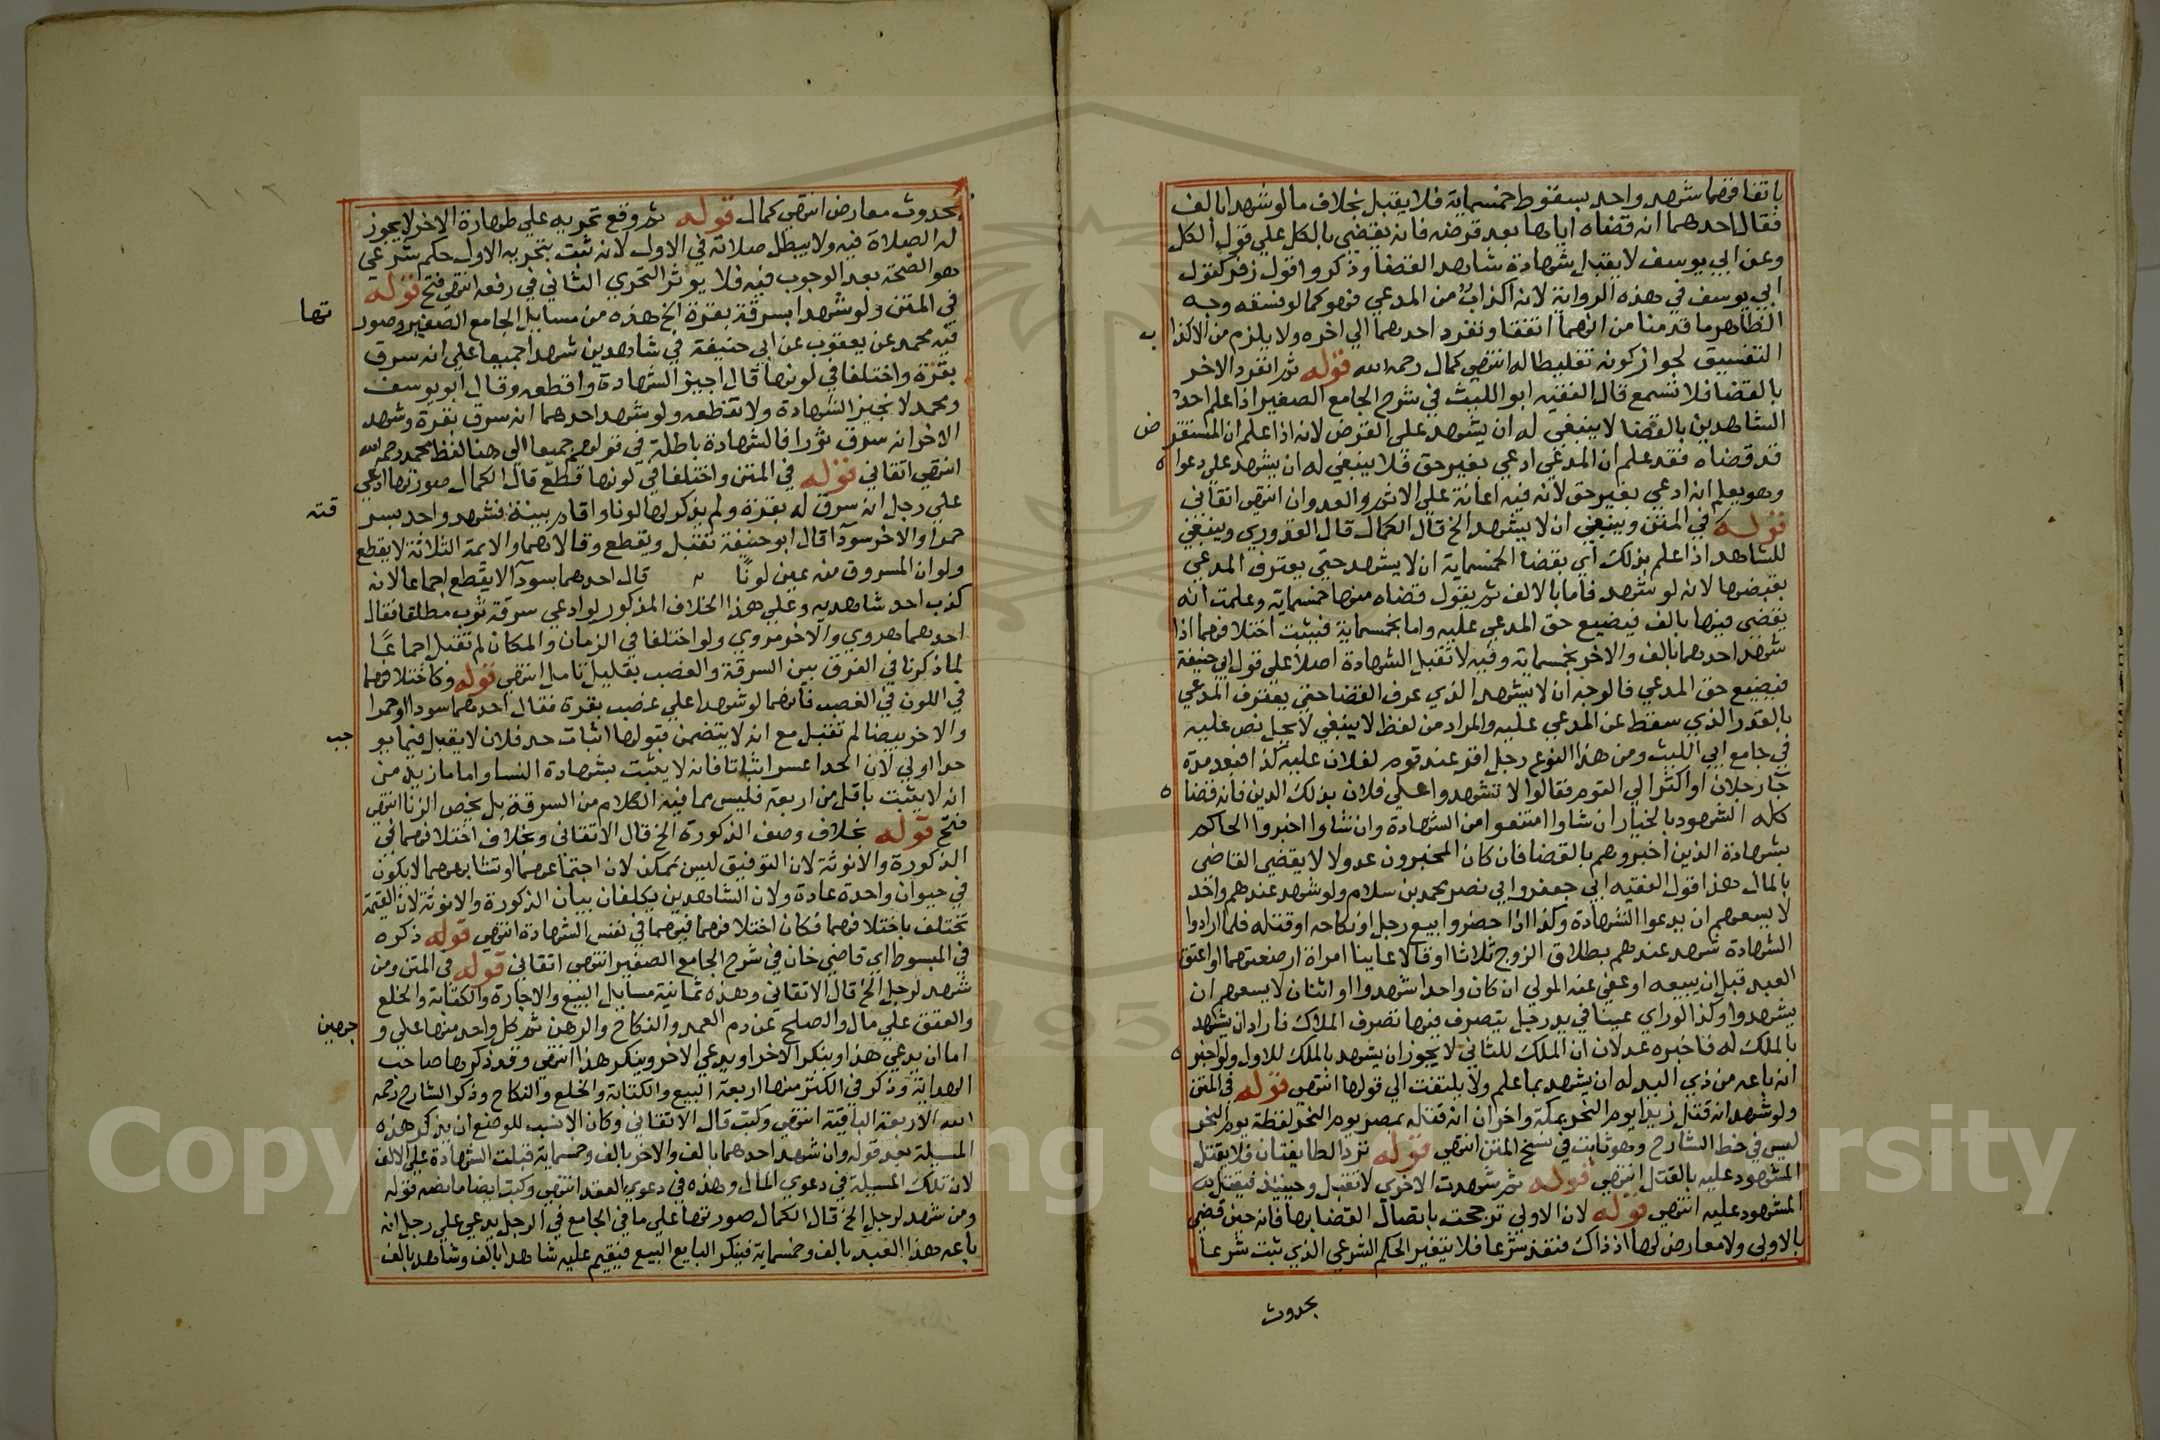 باتفاقهما شهد واحد بسقوط خمسماية فلا يقبل بخلاف ما لو شهدا بالف
فقال احدهما انه قضاه اياها بعد قرضه فانه يقضي بالكل علي قول الكل
وعن ابي يوسف لا يقبل شهادة شاهد القضا وذكروا قول زفر كقول
ابي يوسف في هذه الرواية لانه اكذاب من المدعي فهو كما لو فسقه وجه
الظاهر ما قدمنا من انهما اتفقا وتفرد احدهما الي اخره ولا يلزم من الاكذا ب
التفسيق لجواز كونه تغليطا له انتهي كمال رحمه الله قوله ثم انفرد الاخر
بالقضا فلا تسمع قال الفقيه ابو الليث في شرح الجامع الصغير اذا علم احد
الشاهدين بالقضا لا ينبغي له ان يشهد علي القرض لانه اذا علم ان المستقر ض
قد قضاه فقد علم ان المدعي ادعي بغير حق فلا ينبغي له ان يشهد علي دعوا ه
وهو يعلم انه ادعي بغير حق لانه فيه اعانة علي الاثم والعدوان انتهي اتقاني
قوله في المتن وينبغي ان لا يشهد الخ قال الكمال قال القدوري وينبغي
للشاهد اذا علم بذلك اي بقضا الخمسماية ان لا يشهد حتي يعترف المدعي
بقبضها لانه لو شهد فاما بالالف ثم يقول قضاه منها خمسماية وعلمت انه
يقضي فيها بالف فيضيع حق المدعي عليه واما بخمسماية فيثبت اختلافهما اذا
شهد احدهما بالف والاخر بخمسماية وفيه لا تقبل الشهادة اصلا علي قول ابي حنيفة
فيضيع حق المدعي فالوجه ان لا يشهد الذي عرف القضا حتي يعترف المدعي
بالقدر الذي سقط عن المدعي عليه والمراد من لفظ لا ينبغي لا يحل نص عليه
في جامع ابي الليث ومن هذا النوع رجل اقر عند قوم لفلان عليه كذا فبعد مدة
جا رجلان او اكثر الي القوم فقالوا لا تشهدوا علي فلان بذلك الدين فانه قضا ه
كله الشهود بالخيار ان شاوا امتنعوا من الشهادة وان شاوا اخبروا الحاكم
بشهادة الذين اخبروهم بالقضا فان كان المخبرون عدولا لا يقضي القاضي
بالمال هذا قول الفقيه ابي جعفر وابي نصر محمد بن سلام ولو شهد عندهم واحد
لا يسعهم ان يدعوا الشهادة وكذا اذا حضروا بيع رجل او نكاحه او قتله فلما ارادوا
الشهادة شهد عندهم بطلاق الزوج ثلاثا او قالا عاينا امراة ارضعتهما او اعتق
العبد قبل ان يبيعه او عفي عنه المولي ان كان واحدا شهدوا او اثنان لا يسعهم ان
يشهدوا وكذا لو راي عينا في يد رجل يتصرف فيها تصرف الملاك فاراد ان يشهد
بالملك له فاخبره عدلان ان الملك للثاني لا يجوز ان يشهد بالملك للاول ولو اخبر ه
انه باعه من ذي اليد له ان يشهد بما علم ولا يلتفت الي قولها انتهي قوله في المتن
ولو شهد انه قتل زيدا يوم النحر بمكة واخران انه قتله بمصر يوم النحر لفظة يوم النحر
ليس في خط الشارح وهو ثابت في نسخ المتن انتهي قوله ترد الطايفتان فلا يقتل
المشهود عليه بالقتل انتهي قوله ثم شهدت الاخري لا تقبل وحينيذ فيقتل
المشهود عليه انتهي قوله لان الاولي ترجحت باتصال القضا بها فانه حين قضي
بالاولي ولا معارض لها اذ ذاك فنفذ شرعا فلا يتغير الحكم الشرعي الذي ثبت شرعا
بحدوث
بحدوث معارض انتهي كمال قوله ثم وقع تحريه علي طهارة الاخر لا يجوز
له الصلاة فيه ولا يبطل صلاته في الاول لانه ثبت بتحريه الاول حكم شرعي
هو الصحة بعد الوجوب فيه فلا يوثر التحري الثاني في رفعه انتهي فتح قوله
في المتن ولو شهدا بسرقة بقرة الخ هذه من مسايل الجامع الصغير وصور تها
فيه محمد عن يعقوب عن ابي حنيفة في شاهدين شهدا جميعا علي انه سرق
بقرة واختلفا في لونها قال اجيز الشهادة واقطعه وقال ابو يوسف
ومحمد لا نجيز الشهادة ولا نقطعه ولو شهد احدهما انه سرق بقرة وشهد
الاخر انه سرق ثورا فالشهادة باطلة في قولهم جميعا الي هنا لفظ محمد رحمه الله
انتهي اتقاني قوله في المتن واختلفا في لونها قطع قال الكمال صورتها ادعي
علي رجل انه سرق له بقرة ولم يذكر لها لونا واقام بينة فشهد واحد بسر قته
حمرا والاخر سودا قال ابو حنيفة تقبل ويقطع وقالا هما والايمة الثلاثة لا يقطع
ولو ان المسروق منه عين لونا قال احدهما سودا لا يقطع اجماعا لانه
كذب احد شاهديه وعلي هذا الخلاف المذكور لو ادعي سرقة ثوب مطلقا فقال
احدهما هروي والاخر مروي ولو اختلفا في الزمان والمكان لم تقبل اجماعا
لما ذكرنا في الفرق بين السرقة والغصب بقليل تامل انتهي قوله وكاختلافهما
في اللون في الغصب فانهما لو شهدا علي غصب بقرة فقال احدهما سودا او حمرا
والاخر بيضا لم تقبل مع انه لا يتضمن قبولها اثبات حد فلان لا يقبل فيما يو جب
حدا اولي لان الحد اعسر اثباتا فانه لا يثبت بشهادة النسا واما ما زيد من
انه لا يثبت باقل من اربعة فليس مما فيه الكلام من السرقة بل يخص الزنا انتهي
فتح قوله بخلاف وصف الذكورة الخ قال الاتقاني وبخلاف اختلافهما في
الذكورة والانوثة لان التوفيق ليس بممكن لان اجتماعهما او تشابههما لا يكون
في حيوان واحدة عادة ولان الشاهدين يكلفان بيان الذكورة والانوثة لان القيمة
تختلف باختلافهما فكان اختلافهما فيهما في نفس الشهادة انتهي قوله ذكره
في المبسوط اي قاضي خان في شرح الجامع الصغير انتهي اتقاني قوله في المتن ومن
شهد لرجل الخ قال الاتقاني وهذه ثمانية مسايل البيع والاجارة والكتابة والخلع
والعتق علي مال والصلح عن دم العمد والنكاح والرهن ثم كل واحد منها علي و جهين
اما ان يدعي هذا وينكر الاخر او يدعي الاخر وينكر هذا انتهي وقد ذكرها صاحب
الهداية وذكر في الكنز منها اربعة البيع والكتابة والخلع والنكاح وذكر الشارح رحمه
الله الاربعة الباقية انتهي وكتب قال الاتقاني وكان الانسب للوضع ان يذكر هذه
المسيلة بعد قوله وان شهد احدهما بالف والاخر بالف وخمسماية قبلت الشهادة علي الالف
لان تلك المسيلة في دعوي المال وهذه في دعوي العقد انتهي وكتب ايضا ما نصه قوله
ومن شهد لرجل الخ قال الكمال صورتها علي ما في الجامع في الرجل يدعي علي رجل انه
باعه هذا العبد بالف وخمسماية فينكر البايع البيع فيقيم عليه شاهدا بالف وشاهد بالف
Copyright © King Saud University
1957